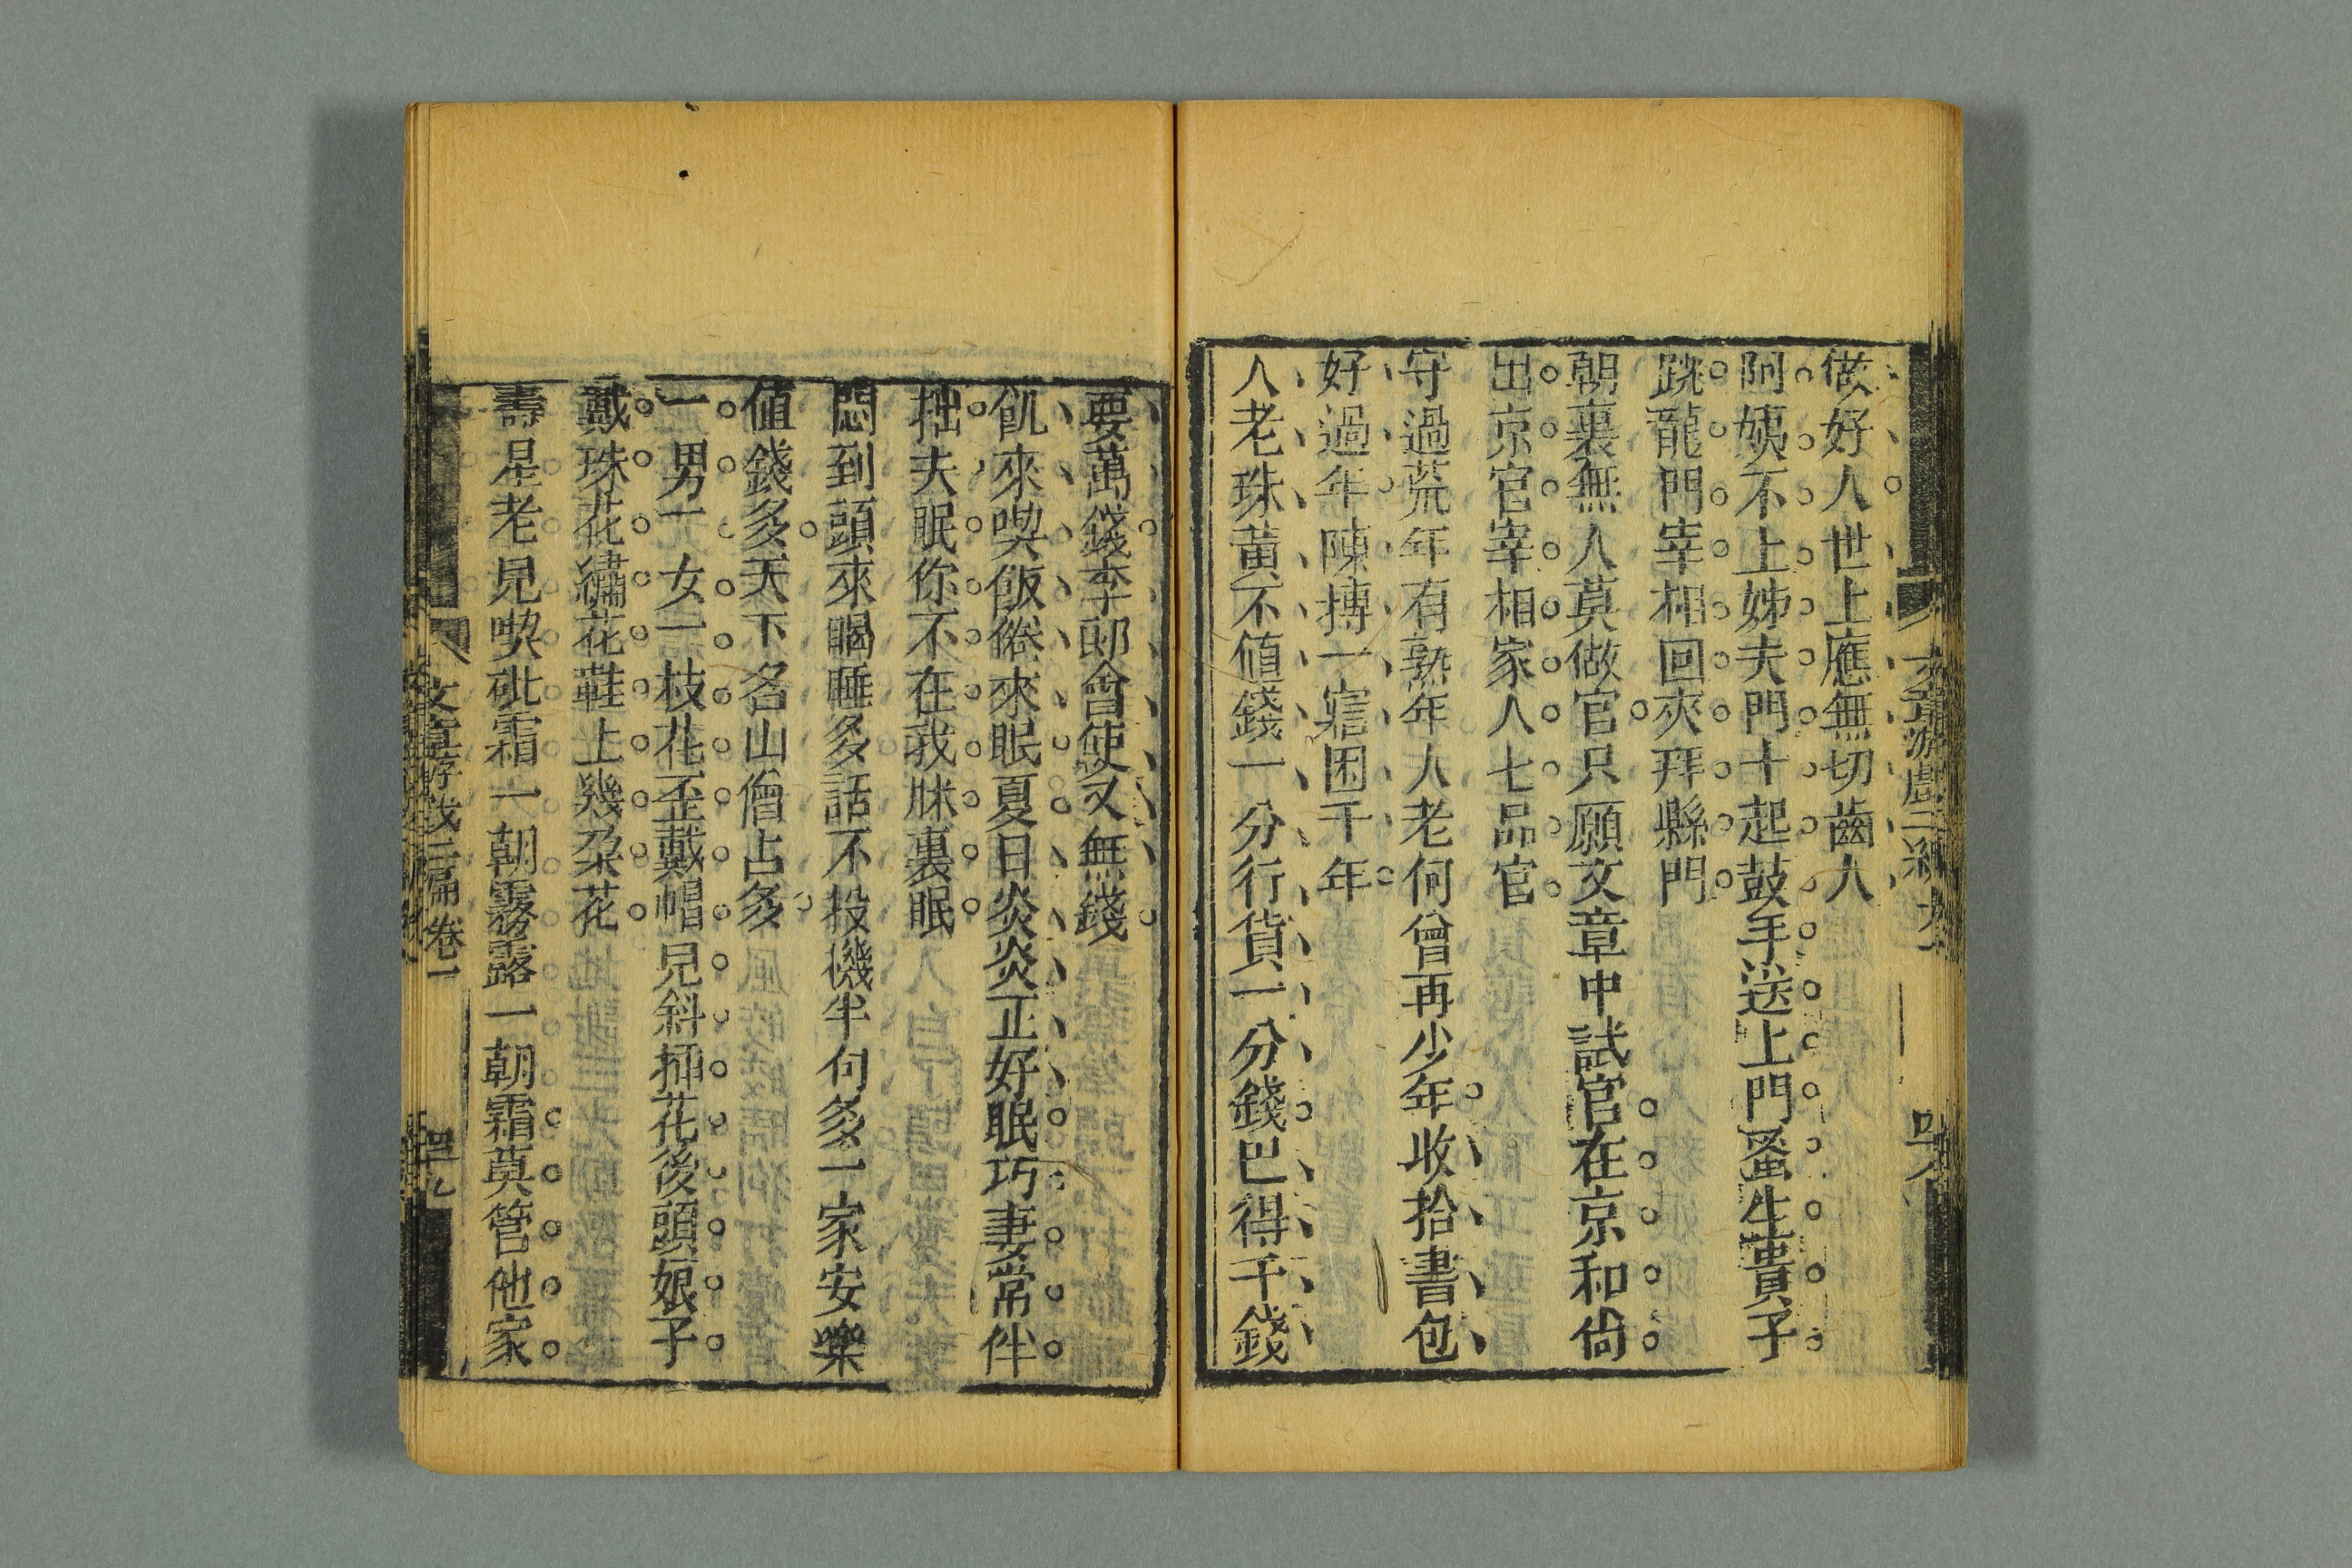 做好人世上應無切齒人
阿姨不上姊夫門十起鼓手送上門蚤生貴子
跳龍門宰相回來拜縣門
朝裏無人莫做官只願文章中試官在京和尙
出京官宰相家人七品官
守過荒年有熟年人老何曾再少年收拾書包
好過年陳摶一寤困千年
人老珠黃不値錢一分行貨一分錢巴得千錢
要萬錢李郎會使又無錢
飢來喫飯倦來眠夏日炎炎正好眠巧妻常伴
拙夫眠你不在我牀裏眠
悶到頭來瞌睡多話不投機半句多一家安樂
値錢多天下名山僧占多
一男一女一枝花歪戴帽兒斜揷花後頭娘子
戴珠花繡花鞋上幾朶花
壽星老兒喫砒霜一朝霧露一朝霜莫管他家
文章游戲二編卷一